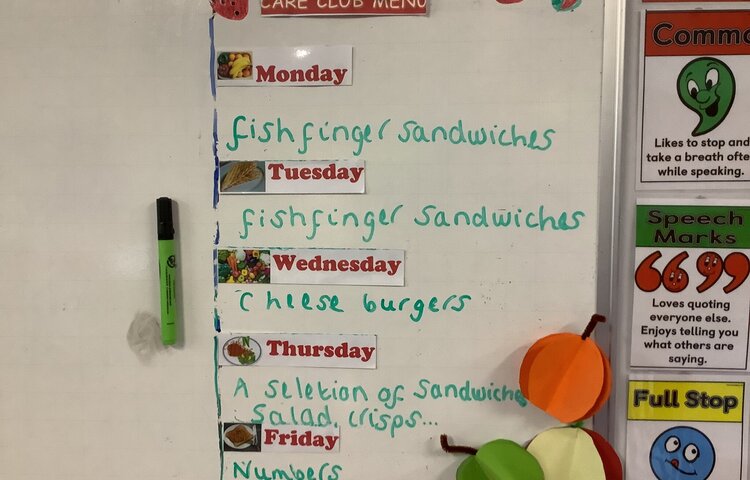 CARE CLUB MENU
Monday
fishfinger sandwiches
Tuesday
fishfinger sandwiches
Wednesday
Cheese burgers
Thursday
A seletion of Sandwiche
Salad, crisps...
Friday
Numbers
Comma
Likes to stop and
take a breath ofte
while speaking.
Speech
Marks
Loves quoting
everyone else.
Enjoys telling you
what others are
saying.
Full Stop